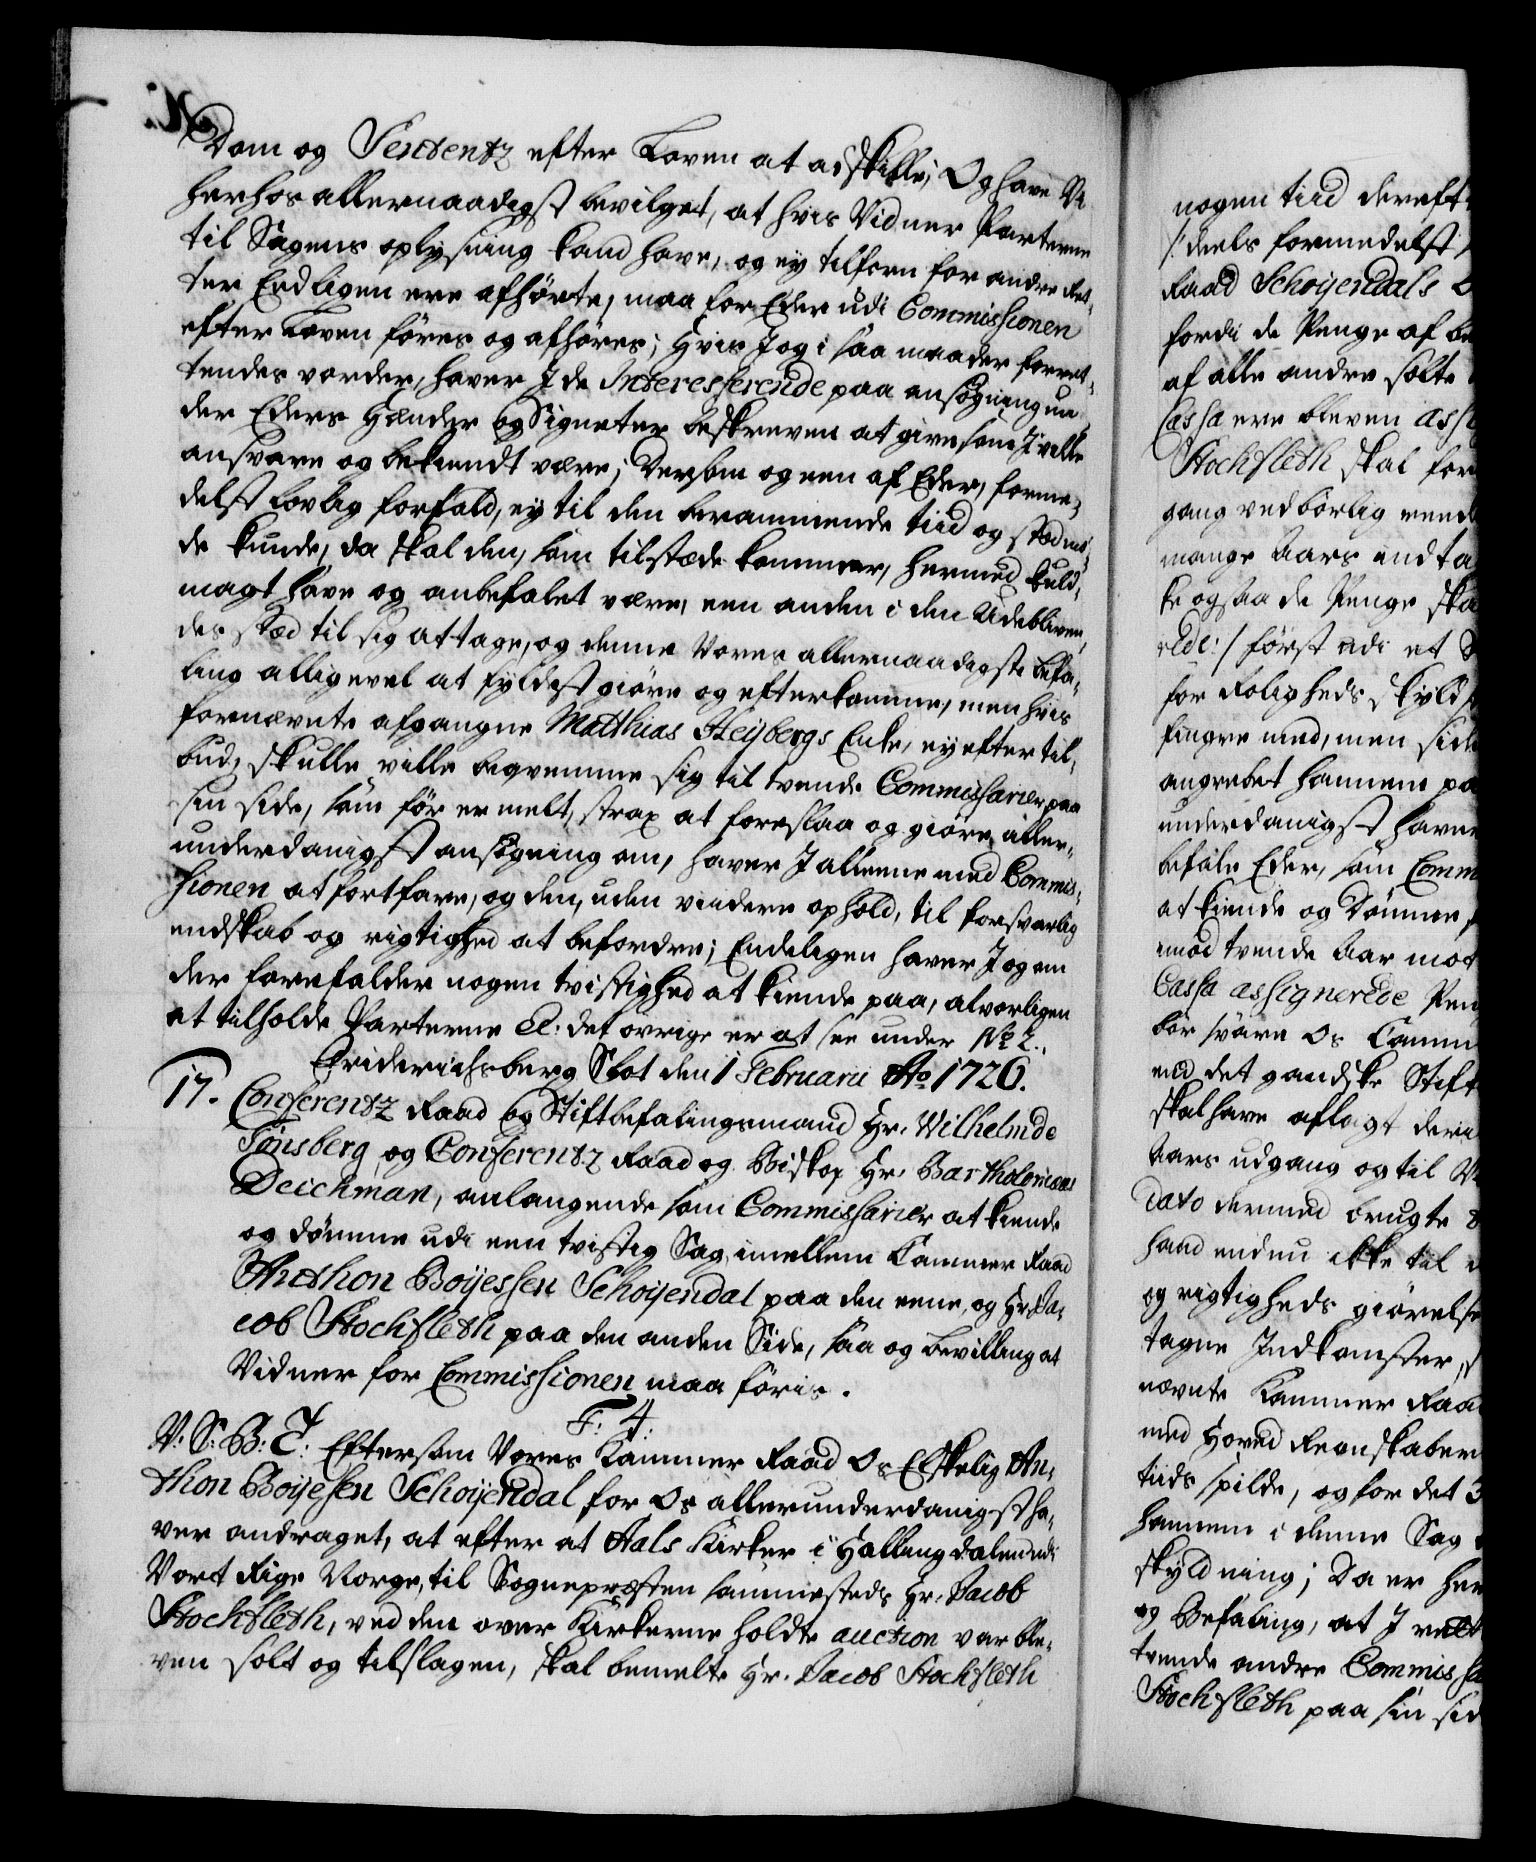 Dom og Sententz efter Loven at adskille; Og have Vi
herhos allernaadigst bevilget, at hvis Vidner Parterne
til Sagens oplysning kand have, og ey tilforn for andre Ret-
ter Endligen ere afhörte, maa for Eder udi Commissionen
efter Loven föres og afhöres; Hvis I og i saa maader forret-
tendes vorder, haver I de Interesserende paa ansögning un-
der Eders Hænder og Signeter beskreven at give som I ville
ansvare og bekiendt være; Dersom og een af Eder, forme-
delst lovlig forfald, ey til den berammende tiid og stæd mö-
de kunde, da skal den, som tilstæde kommer, hermed fuld-
magt have og anbefalet være, een anden i den Udebliven-
des stæd til sig at tage, og denne Vores allernaadigste befa-
ling alligevel at fyldestgiöre og efterkomme, men hvis
fornævnte afgangne Matthias Heybergs Enke, ey efter til-
bud, skulle ville beqvemme sig til tvende Commissarier paa
sin side, som för er melt, strax at foreslaa og giöre aller-
underdanigst ansögning om, haver I alleene med Commis-
sionen at fortfare, og den, uden viidere ophold, til forsvarlig
endskab og rigtighed at befordre; Endeligen haver I og om
der forefalder nogen tvistighed at kiende paa, alvorligen
at tilholde Parterne &: det övrige er at see under No 2.
Friderichsberg Slot den 1 Februarii Ao 1726.
17. Conferentz Raad og Stiftbefalingsmand Hr. Wilhelm de
Tönsberg, og Conferentz Raad og Biskop Hr. Bartholomæus
Deichman, anlangende som Commissarier at kiende
og dömme udi een tvistig Sag imellem Cammer Raad
Anthon Boyessen Schoyendal paa den eene, og Hr. Ja-
cob Stochfleth paa den anden Side, saa og bevilling at
Vidner for Commissionen maa föris.
F: 4.
V: S: B: T: Eftersom Vores Kammer Raad Os Elskelig An-
thon Boyesen Schoyendal for Os allerunderdanigst ha-
ver andraget, at efter at Aals Kirker i Hallingdalen udi
Vort Rige Norge, til Sognepræsten sammesteds Hr. Jacob
Stochfleth, ved den over Kirkerne holdte auction var ble-
ven solt og tilslagen, skal bemelte Hr. Jacob Stochfleth
nogen tiid dereft
/: deels formedelst
Raad Schoyendals
fordi de Penge af
af alle andre solte
Cassa ere bleven
Stochfleth skal for
gang vedbörlig
mange Aars indta
ke ogsaa de Penge ska
rede :/ först udi et
for Roligheds skyld
fingre med, men side
angrebet hannem paa
underdanigst haver
befale Eder, som Comm
at kiende og Dömme
imod tvende Aar
Cassa assignerede Pen
bör svare Os
det gandske Stift
skal have aflagt
Aars udgang og til
dato dermed brugte
hand endnu ikke til
og rigtigheds giörelse
tagne Indkomster,
nævnte Kammer Raad
med Hoved Regnskaber
tiids spilde, og for det 3
hannem i denne Sag
skyldning; Da er
og Befaling, at I
tvende andre Commissa
Stochfleth paa sin sid